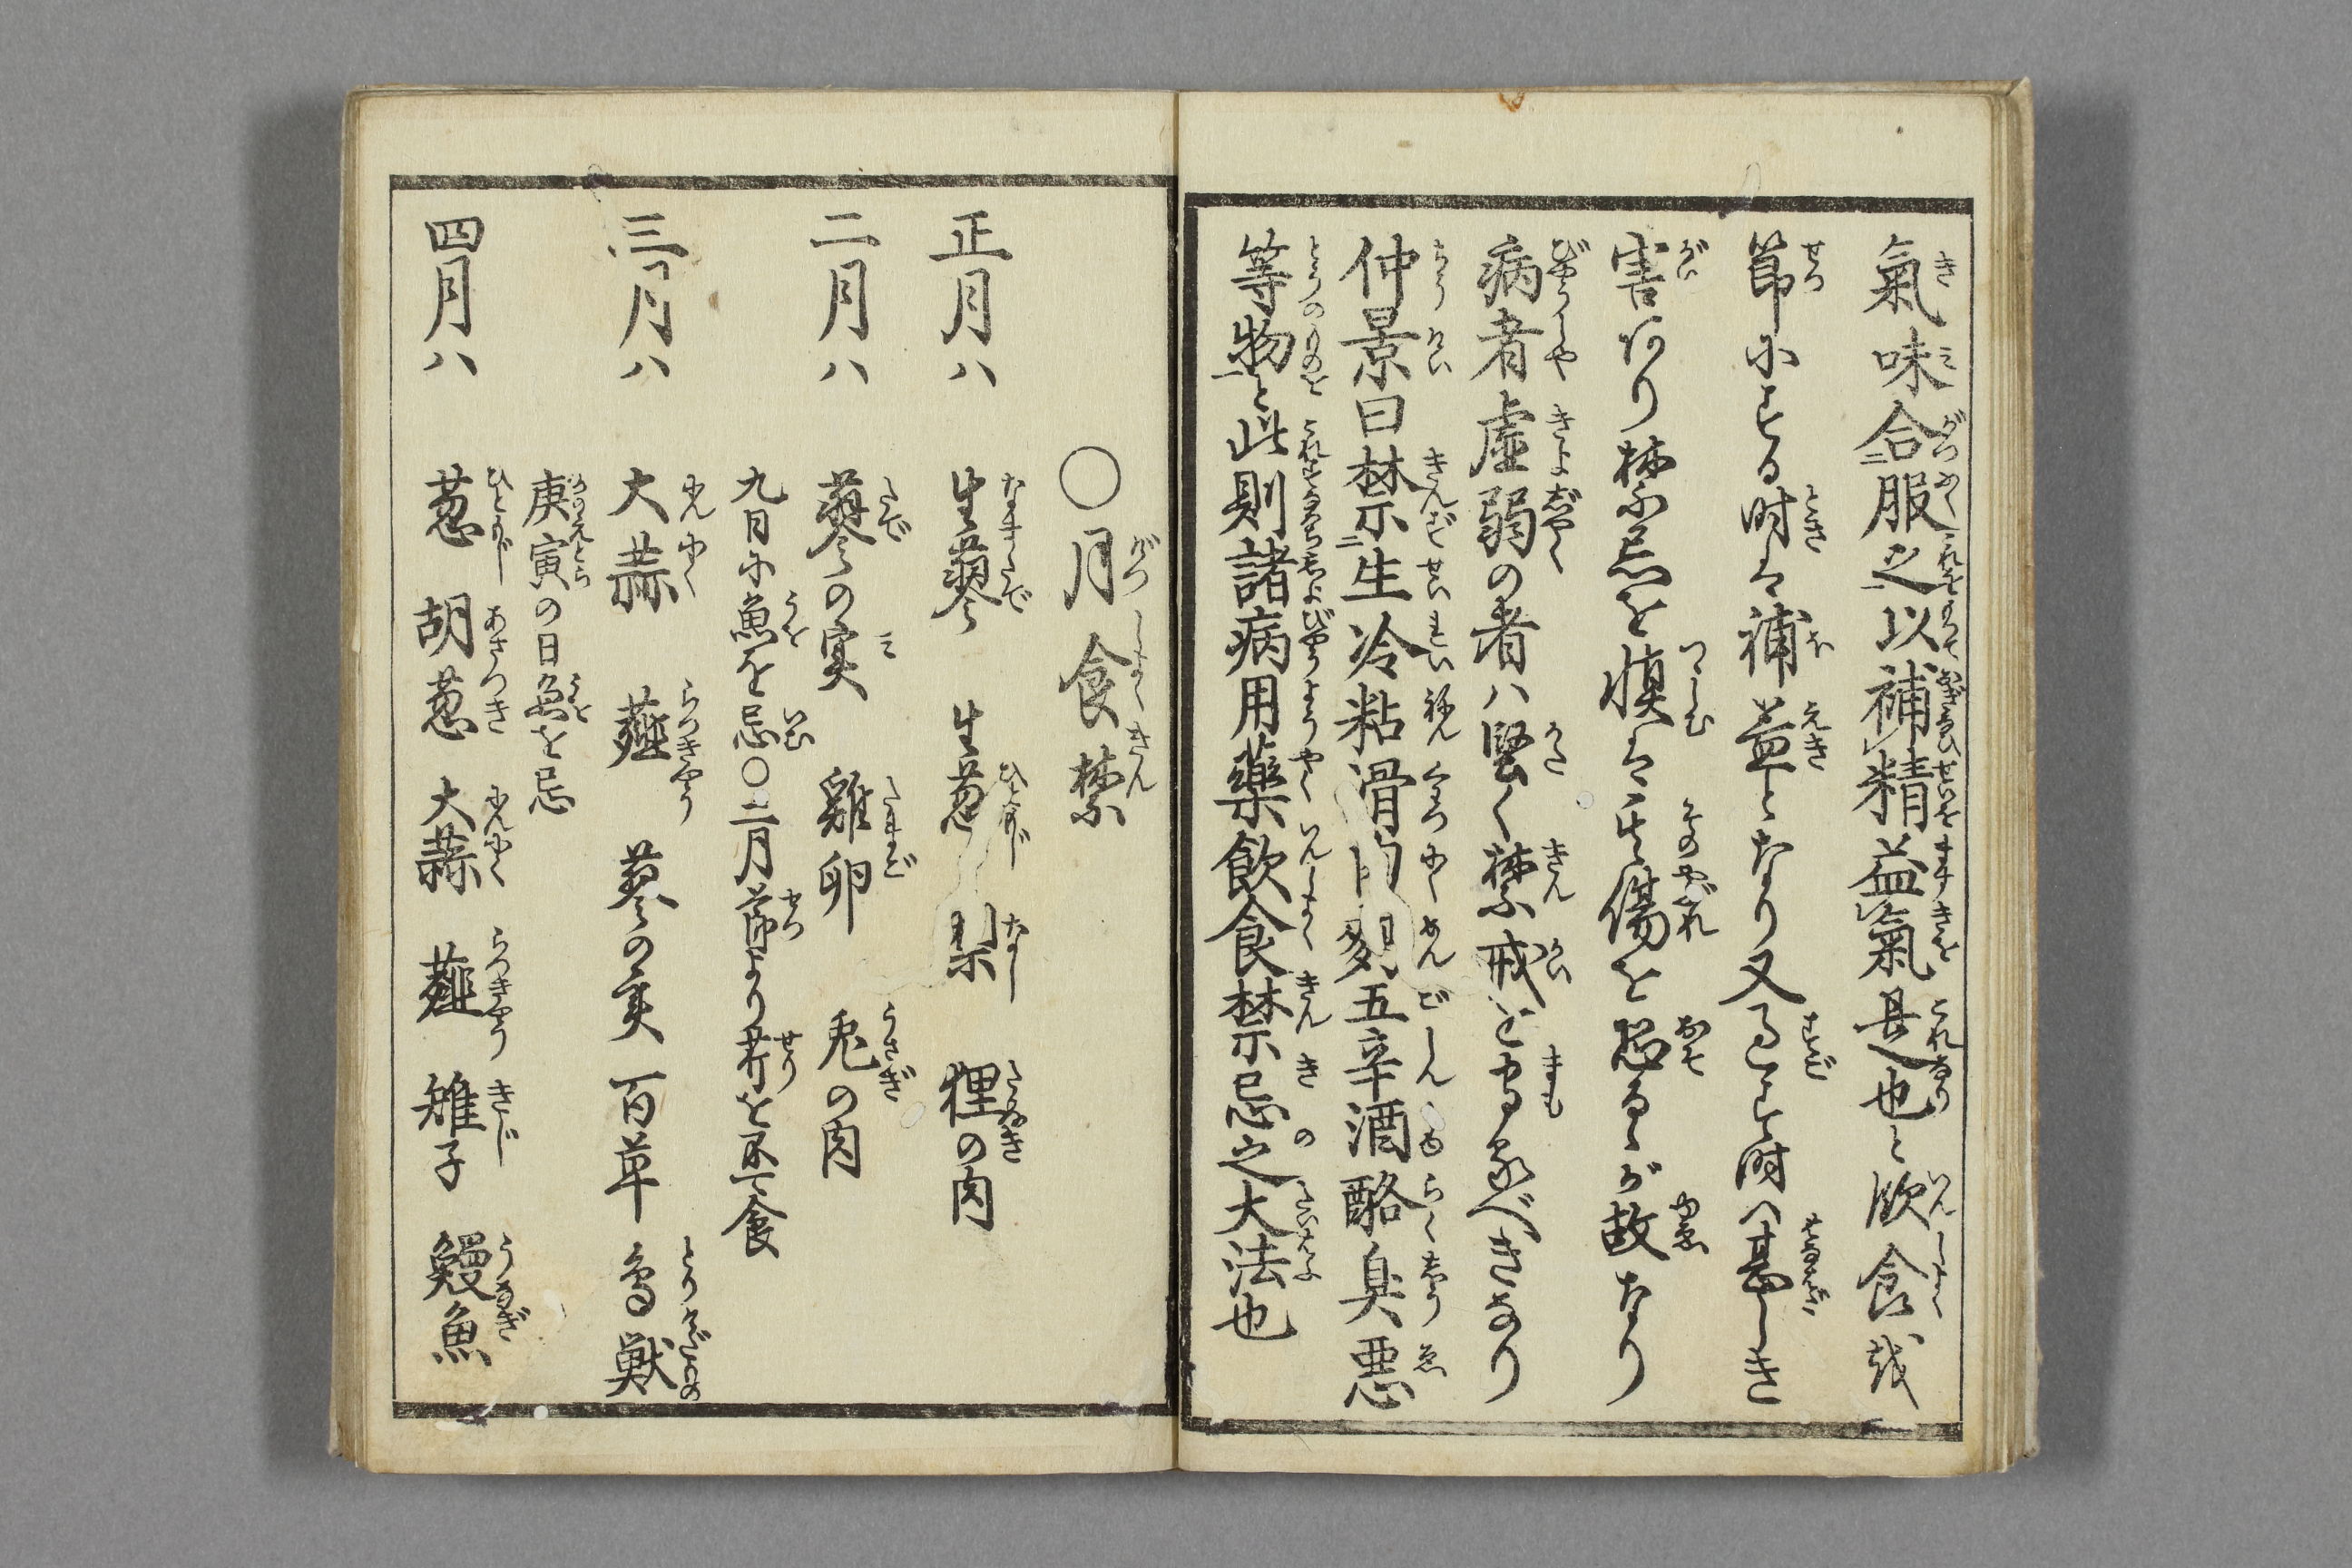 氣味合服之以補精益氣是也と飲食哉
節にする時は補益となり又過す時ハ甚しき
害あり禁忌を慎は其傷を恐るゝが故なり
病者虚弱の者ハ堅く禁戒を守るべきなり
仲景曰禁生冷粘滑肉麪五辛酒酪臭悪
等物と此則諸病用藥飲食禁忌之大法也
○月食禁
正月ハ 生蓼 生葱 梨 狸の肉
二月ハ 蓼の実 雞卵 兎の肉
九日に魚を忌○二月節より芹を不食
三月ハ 大蒜 薤 蓼の実 百草 鳥獣
庚寅の日魚を忌
四月ハ 葱 胡葱 大蒜 薤 雉子 鰻魚